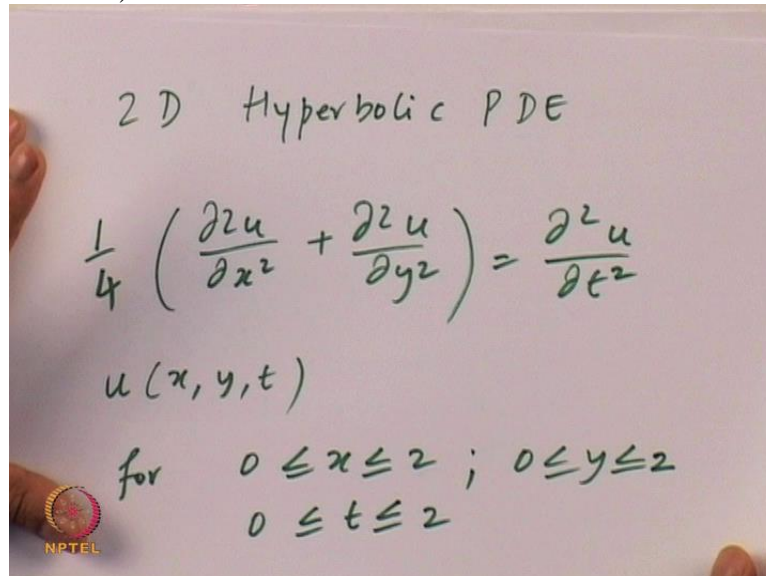 2D Hyperbolic PDE
1/4 ( ∂2u/∂x² + ∂2u/∂y² ) = ∂²u/∂t²
u(x, y, t)
for 0 ≤ x ≤ 2 ; 0 ≤ y ≤ 2
0 ≤ t ≤ 2
NPTEL